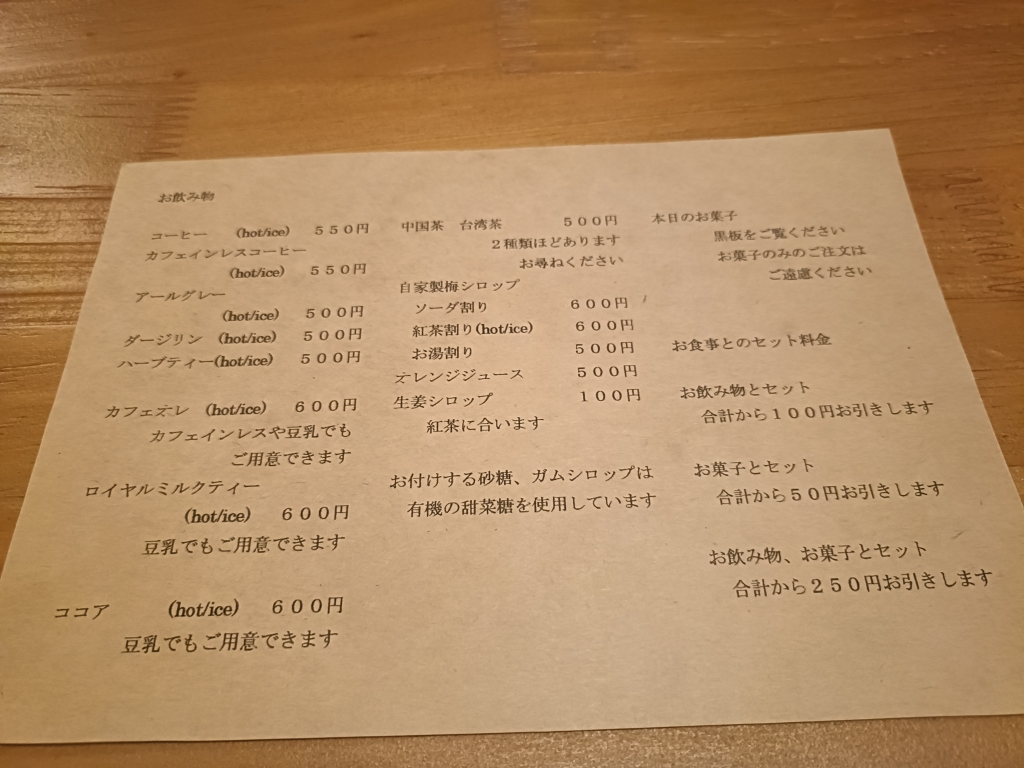 お飲み物
コーヒー (hot/ice) ５５０円
カフェインレスコーヒー
(hot/ice) ５５０円
アールグレー
(hot/ice) ５００円
ダージリン (hot/ice) ５００円
ハーブティー(hot/ice) ５００円
カフェオレ (hot/ice) ６００円
カフェインレスや豆乳でも
ご用意できます
ロイヤルミルクティー
(hot/ice) ６００円
豆乳でもご用意できます
ココア (hot/ice) ６００円
豆乳でもご用意できます
中国茶 台湾茶 ５００円
２種類ほどあります
お尋ねください
自家製梅シロップ
ソーダ割り ６００円
紅茶割り(hot/ice) ６００円
お湯割り ５００円
オレンジジュース ５００円
生姜シロップ １００円
紅茶に合います
お付けする砂糖、ガムシロップは
有機の甜菜糖を使用しています
本日のお菓子
黒板をご覧ください
お菓子のみのご注文は
ご遠慮ください
お食事とのセット料金
お飲み物とセット
合計から１００円お引きします
お菓子とセット
合計から５０円お引きします
お飲み物、お菓子とセット
合計から２５０円お引きします